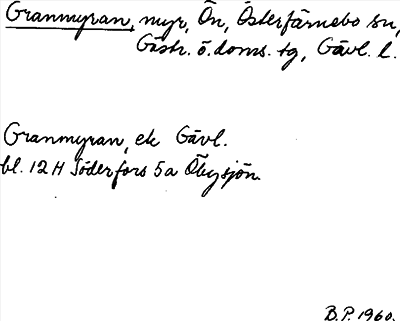 Granmyran, myr, Ön, Österfärnebo sn,
Gästr. ö. doms. tg, Gävl. l.
Granmyran, ek Gävl.
bl. 12 H Söderfors 5 a Öbysjön.
B.P. 1960.